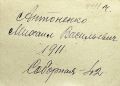 Антоненко
Михаил Васильевич
1911
Северная - 42